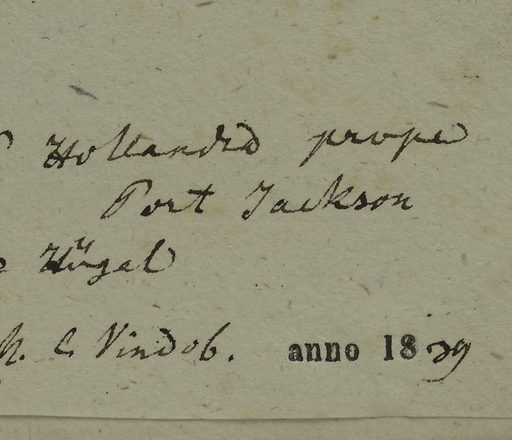 Hollandia prope
Port Jackson
Hügel
h. C. Vindob. anno 1839